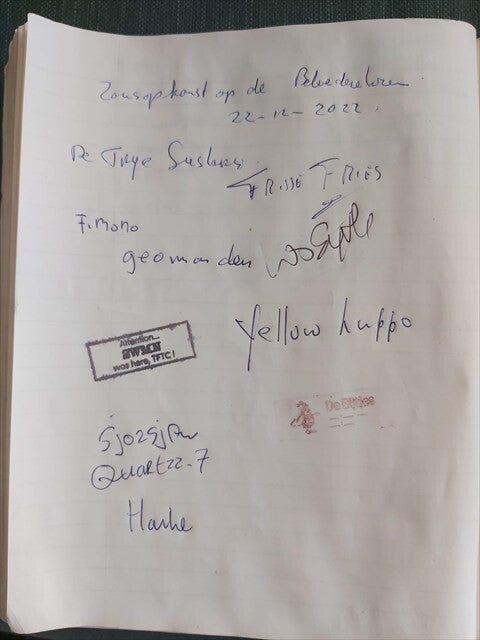 Zonsopkomst op de Belvedere toren.
22-12-2022.
De Trye
FRISSE FRIES
F.mono
geomanden
yellow huppo
Attention...
was here, TFTC!
De Bijtjes
Sjorsjan
Quartzz-7
Harke